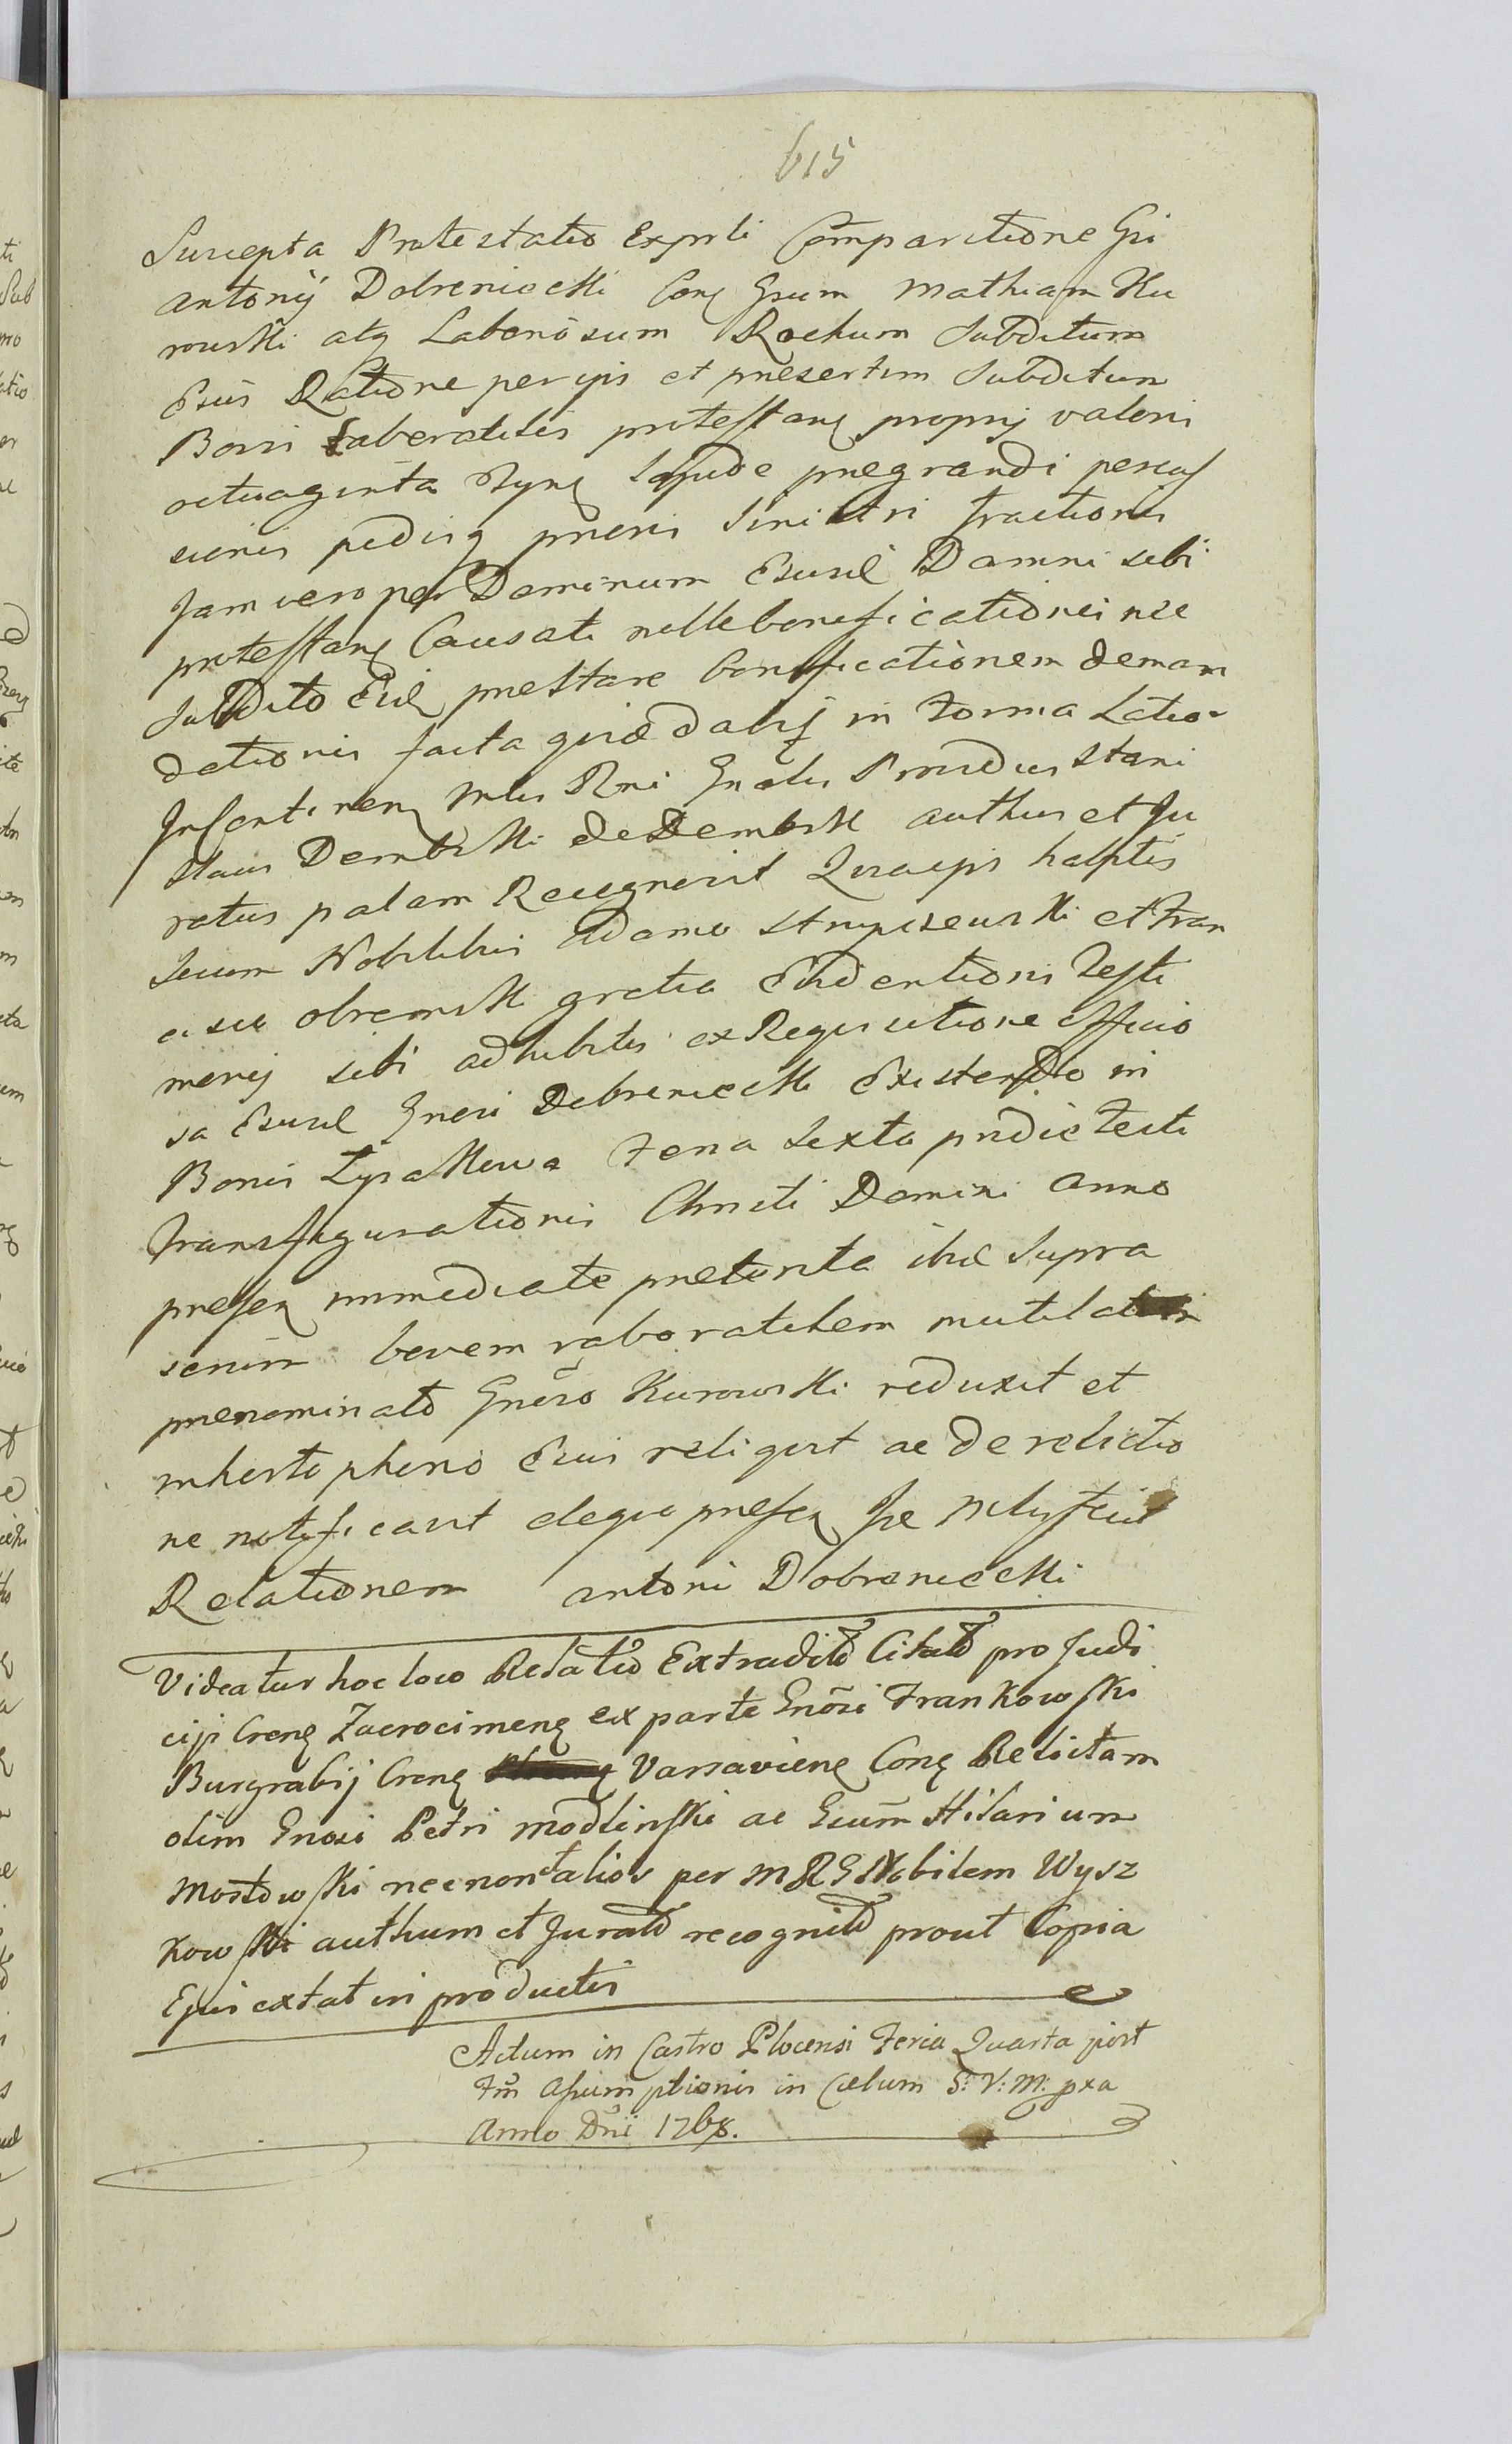 615
Suscepta Protestatio Exprli Comparitione Gsi
Antonij Dobrenieckki Cong Gsum Mathiam Ku
rowskki atq Laboriosum Rochum Subditum
Esus Ratione per ips et presertim Subditum
Bovi Laboratilis protestang proprij valoris
octuaginta Lapide pregrandi percus
sionis pedisq prioris Sinistri fractionis
Jam vero per Dominum Damni sibi
protestang Causati nolle bonificationis nec
Subdito prestare bonificationem deman
dationis facta in Forma Latio
Infert. Mlis Rni Gnalis Providus Stani
slaus Dembskki de Dembskk authus et Ju
ratus palam Recognovit Quia ips habitis
Secum Nobilibus Adamo et Fran
cisco gratia Evidentioris Testi
monij sibi adhibitis ex Requisitione Officio
sa Gnesi Dobrenieckki Existendo in
Bonis Lysakkowa Feria Sexta pridie Festi
Transfigurationis Christi Domini Anno
presen immediate preterita ibid supra
bovem raboratilem mutilatum
prenominato Gnoso Kurowskki reduxit et
in horto pheno Esus reliquit ac de relictio
ne notificavit deque presen Mlis fecit
Relationem Antoni Dobrenieckki
Videatur hoc loco Relatio Extradit Citat pro Judi
cijs Creng Zacrocimeng ex parte Gnosi Frankowski
Burgrabij Creng Varsavieng Cong Relictam
olim Gnosi Petri Modlinski ac Gsum Hilarium
Mostowski necnon alios per M R G Nobilem Wysz
kowski authum et Jurat recognit prout Copia
Ejus extat in productis
Actum in Castro Plocensi Feria Quarta post
Fm Assumptionis in Cælum S: V: M: pxa
Anno Dni 1768.